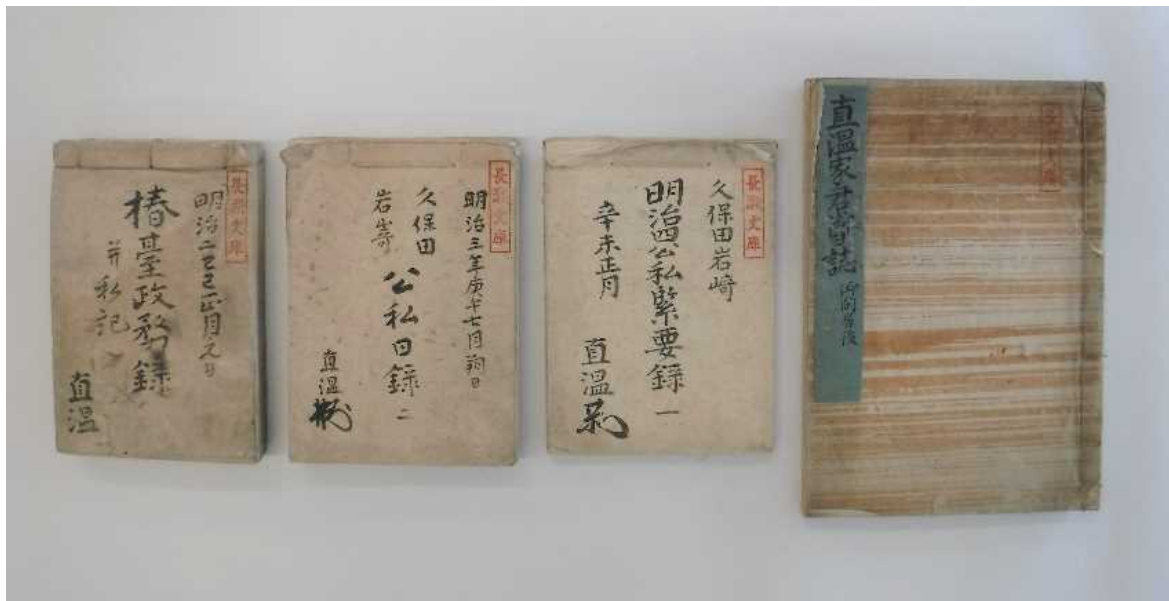 明治二己巳正月元日
椿臺政務録
并私記
直温
長瀬文庫
明治三年庚午七月朔日
久保田
岩嵜
公私日録 二
直温
長瀬文庫
久保田岩崎
明治四公私緊要録 一
辛未正月
直温
直温家君
誌